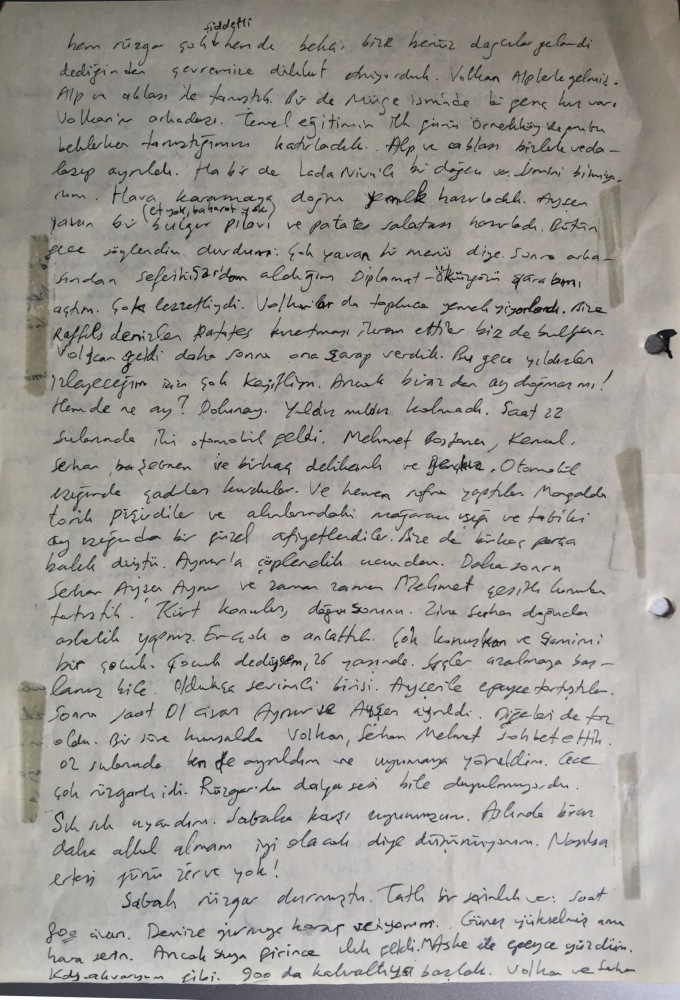 şiddetli
hem rüzgar çok hem de bekçi bize henüz dağcılar gelendi
dediğinden çevremize dikkat ediyorduk. Volkan Alplerle gelmiş.
Alp ve ablası ile tanıştık. Bir de Müge isminde bir genç kız var.
Volkan'ın arkadaşı. Temel eğitimin ilk günü Örnekköy'de grubu
beklerken tanıştığımızı hatırladık. Alp ve ablası bizlerle veda-
laşıp ayrıldı. Ha bir de Lada Niva'lı bir dağcı var. İsmini bilmiyo-
rum. Hava kararmaya doğru yemek hazırladık. Ayşen
(et yok, baharat yok)
yavan bir bulgur pilavı ve patates salatası hazırladı. Bütün
gece söylendim durdum. Çok yavan bir menü diye. Sonra arka-
sından Seferihisar'dan aldığım Diplomat-Öküzgözü şarabını
açtım. Çok lezzetliydi. Volkanlar da topluca yemek yiyorlardı. Bize
Raffils denizden patates kızartması ikram ettiler biz de bulgur.
Volkan geldi daha sonra ona şarap verdik. Bu gece yıldızları
izleyeceğim için çok keyifliyim. Ancak birazdan ay doğmaz mı!
Hem de ne ay? Dolunay. Yıldız mıldız kalmadı. Saat 22
sularında iki otomobil geldi. Mehmet Kemal,
Serhan, ve birkaç delikanlı ve Otomobil
ışığında çadırları kurdular. Ve hemen sofra yaptılar. Mangalda
torik pişirdiler ve alınlarındaki mağaracı ışığı ve tabiki
ay ışığında bir güzel afiyetlendiler. Bize de birkaç parça
balık düştü. Aynur'la çöplendik ucundan. Daha sonra
Serhan Ayşen Aynur ve zaman zaman Mehmet çeşitli konuları
tartıştık. Kürt konuları, doğu sorunu. Zira Serhan doğuda
askerlik yapmış. En çok o anlattı. Çok konuşkan ve samimi
bir çocuk. Çocuk dediysem, 26 yaşında. Saçlar azalmaya baş-
lamış bile. Oldukça sevimli birisi. Ayşenle epeyce tartıştılar.
Sonra saat 01 civarı Aynur ve Ayşen ayrıldı. Diğerleri de toz
oldu. Bir süre kumsalda Volkan, Serhan Mehmet sohbet ettik.
02 sularında ben de ayrıldım ve uyumaya yöneldim. Gece
çok rüzgarlı idi. Rüzgardan dalga sesi bile duyulmuyordu.
Sık sık uyandım. Sabaha karşı uyumuşum. Aslında biraz
daha alkol almam iyi olacak diye düşünüyorum. Nasılsa
ertesi günü zirve yok!
Sabah rüzgar durmuştu. Tatlı bir serinlik var. Saat
800 civarı. Denize girmeye karar veriyorum. Güneş yükselmiş ama
hava serin. Ancak suya girince ılık geldi. Maske ile epeyce yüzdüm.
Koy akvaryum gibi. 900 da kahvaltıya başladık. Volkan ve Serhan